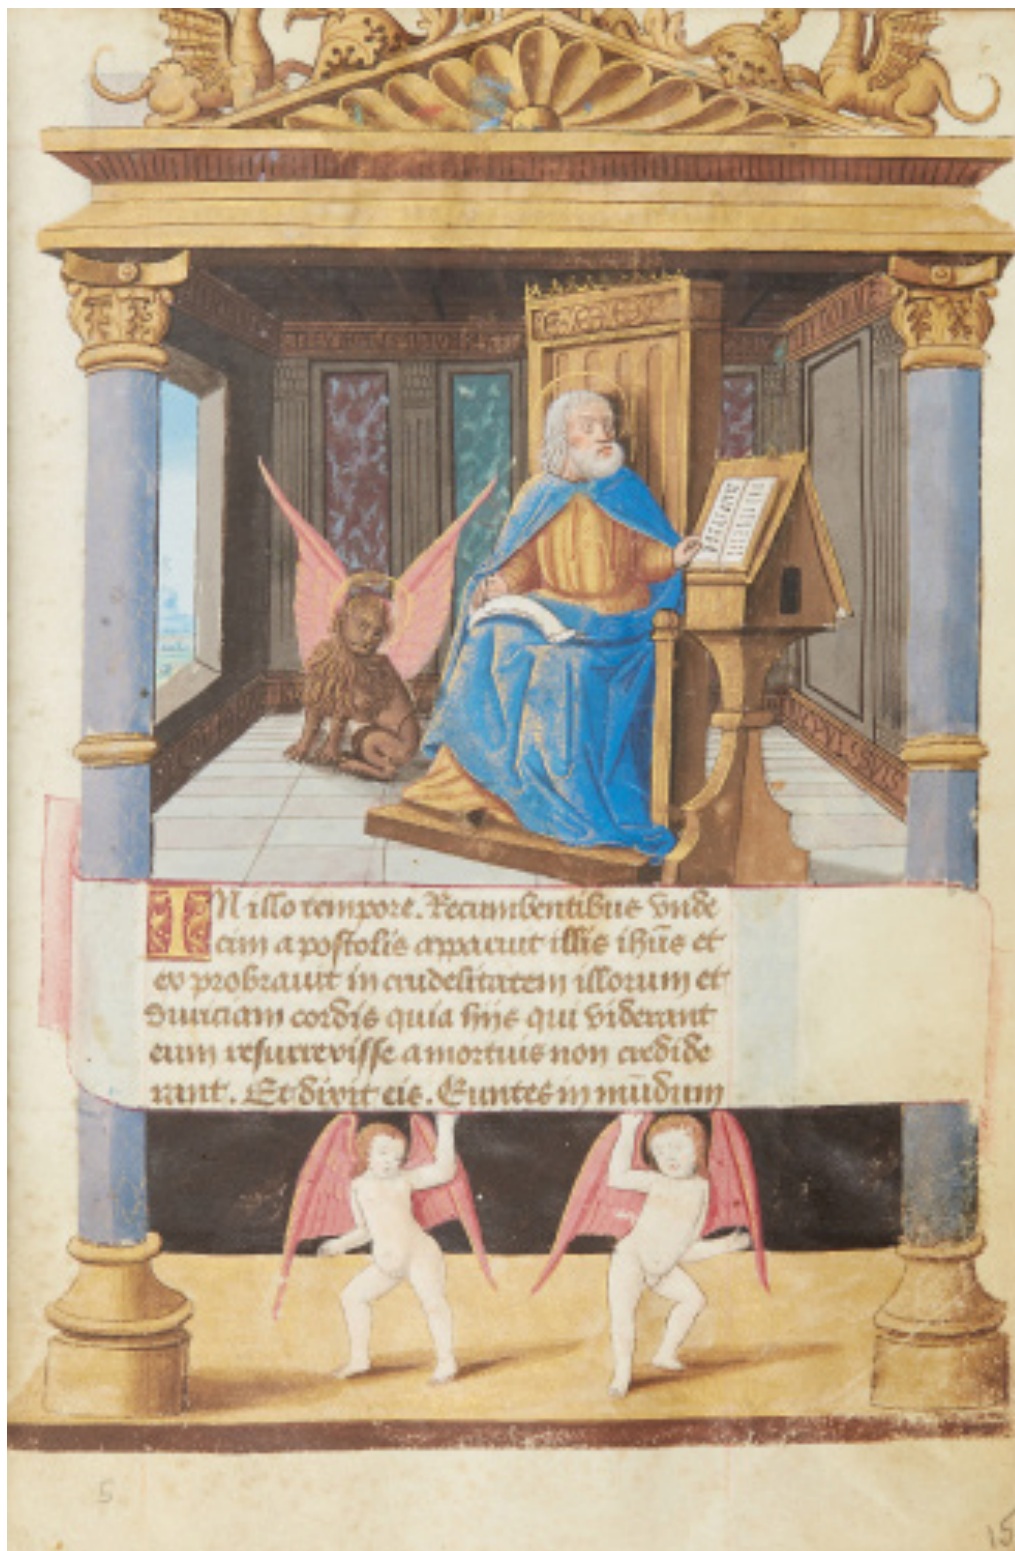 IN illo tempore. Recumbentibus vnde
cim apostolis apparuit illis ihūs et
ex probrauit in crudelitatem illorum et
duriciam cordis quia hiis qui viderant
eum resurrexisse a mortuis non credide
rant. Et dixit eis. Euntes in mūdum
5
15